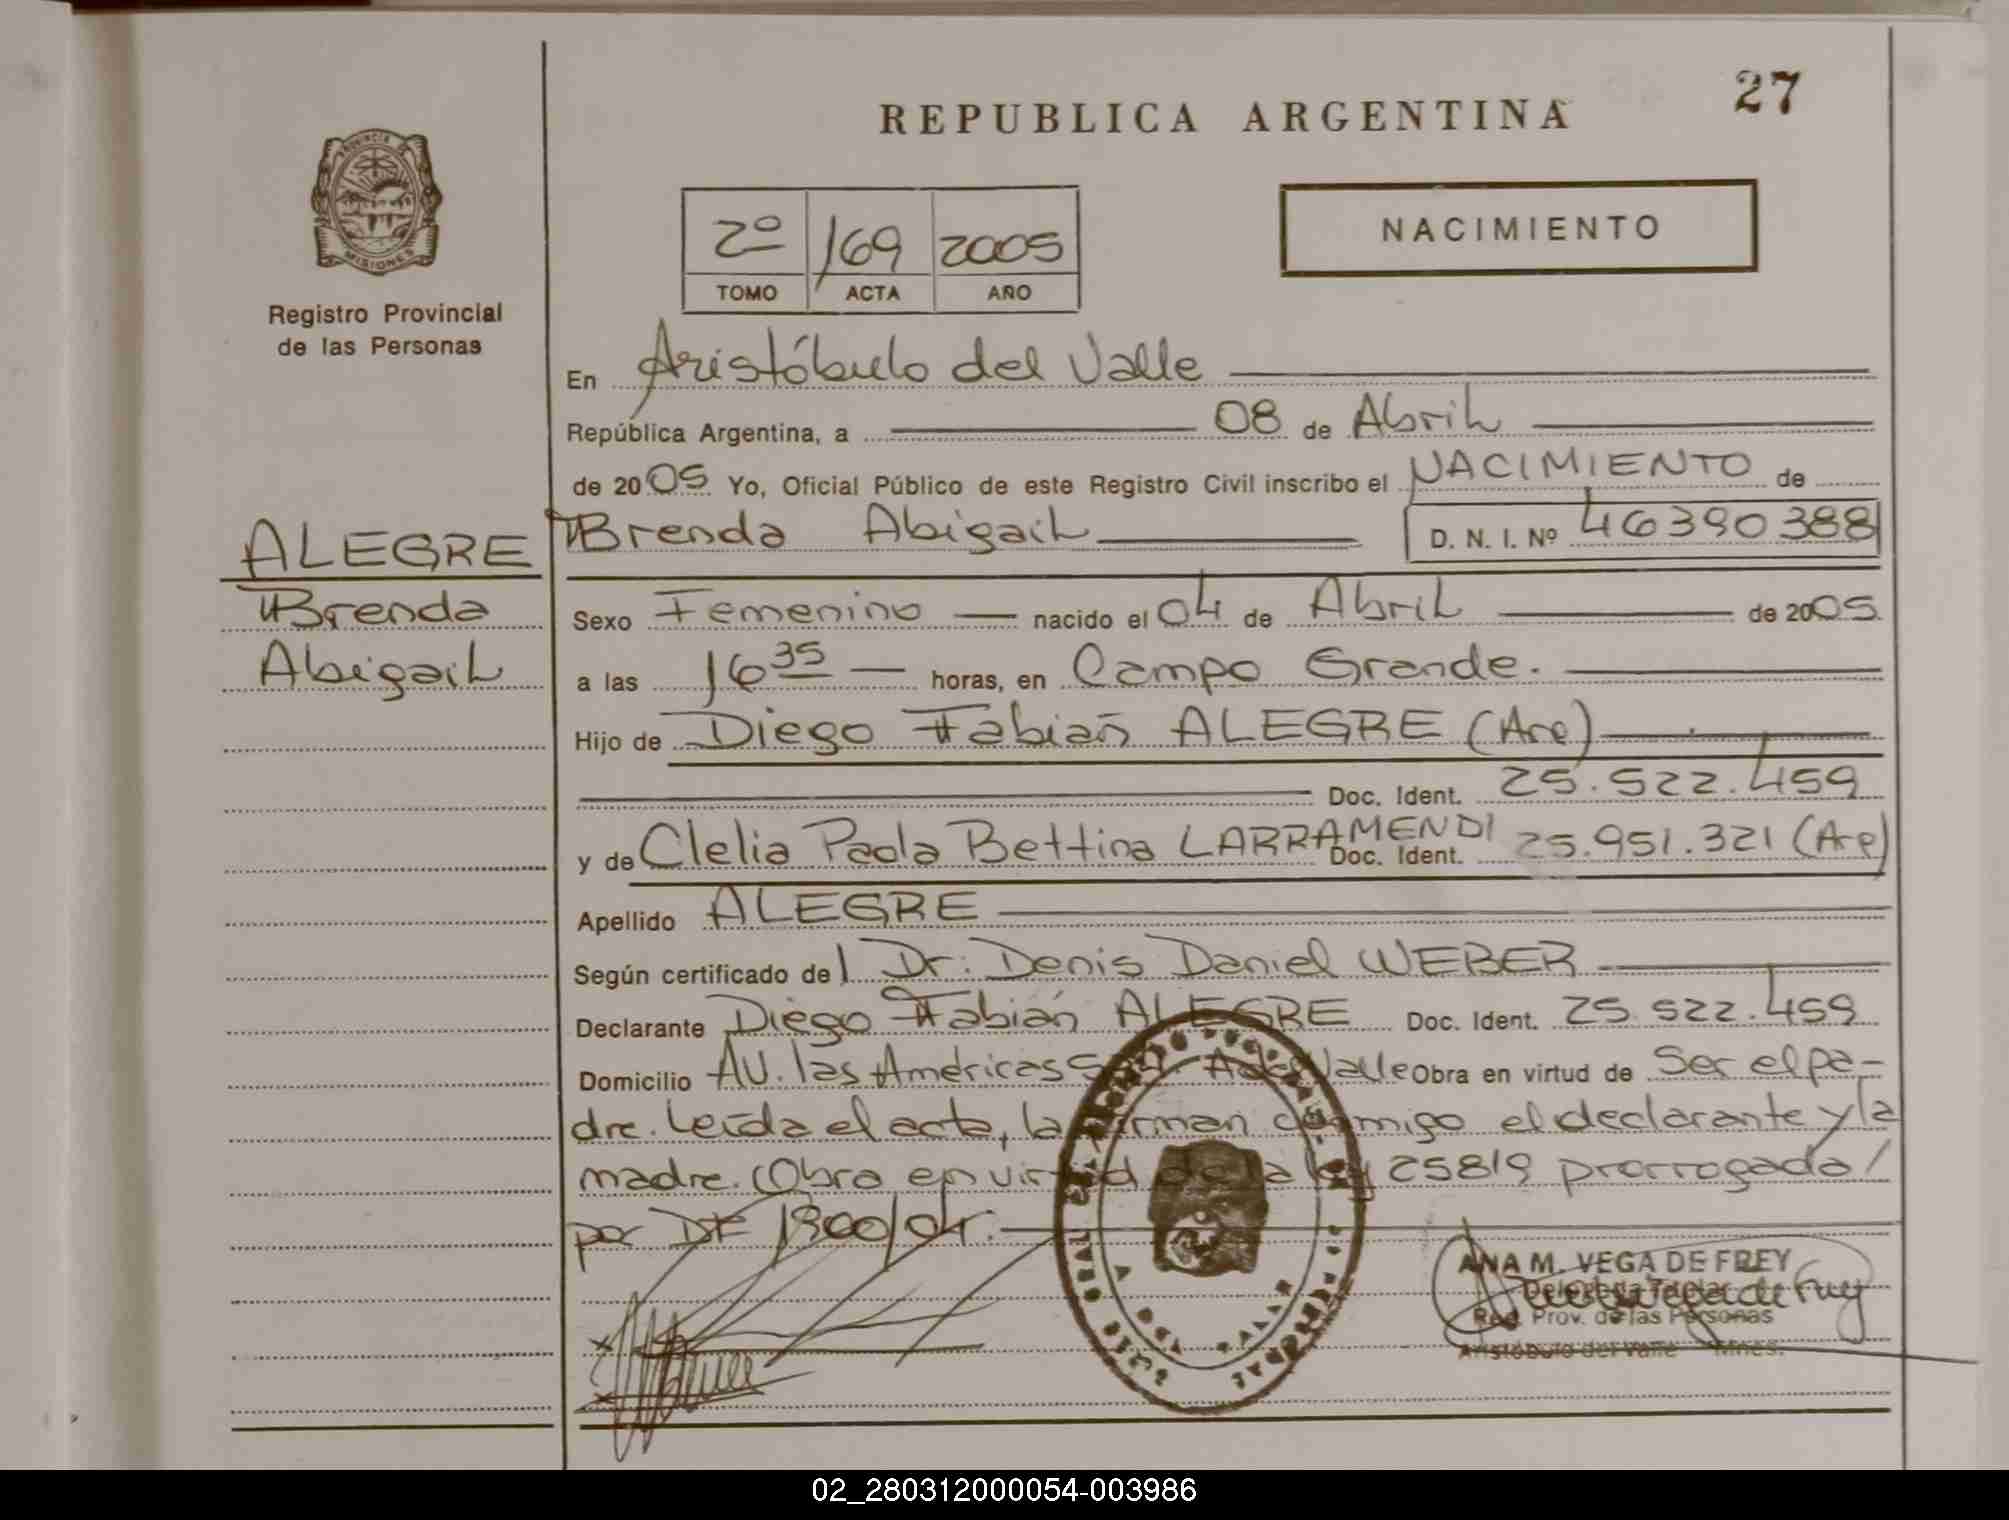 27
REPUBLICA ARGENTINA
PROVINCIA DE
MISIONES
Registro Provincial
de las Personas
2º 169 2005
TOMO ACTA AÑO
NACIMIENTO
En Aristóbulo del Valle
República Argentina, a 08 de Abril
de 2005 Yo, Oficial Público de este Registro Civil inscribo el NACIMIENTO de
ALEGRE
Brenda
Abigail
Brenda Abigail D. N. I. Nº 46390388
Sexo Femenino nacido el 04 de Abril de 2005
a las 16 35 horas, en Campo Grande.
Hijo de Diego Fabián ALEGRE (Are)
Doc. Ident. 25.522.459
y de Clelia Paola Bettina LARRAMENDI Doc. Ident. 25.951.321 (Are)
Apellido ALEGRE
Según certificado del Dr. Denis Daniel WEBER
Declarante Diego Fabián ALEGRE Doc. Ident. 25.522.459
Domicilio AV. las Américas Valle Obra en virtud de Ser el pa-
dre. Leída el acta, la firman conmigo el declarante y la
madre. Obra en virtud de la ley 25819 prorrogada/
por 1900/04.
ANA M. VEGA DE FREY
Delegada Titular
Reg. Prov. de las Personas
Aristóbulo del Valle - Mnes.
02_280312000054-003986